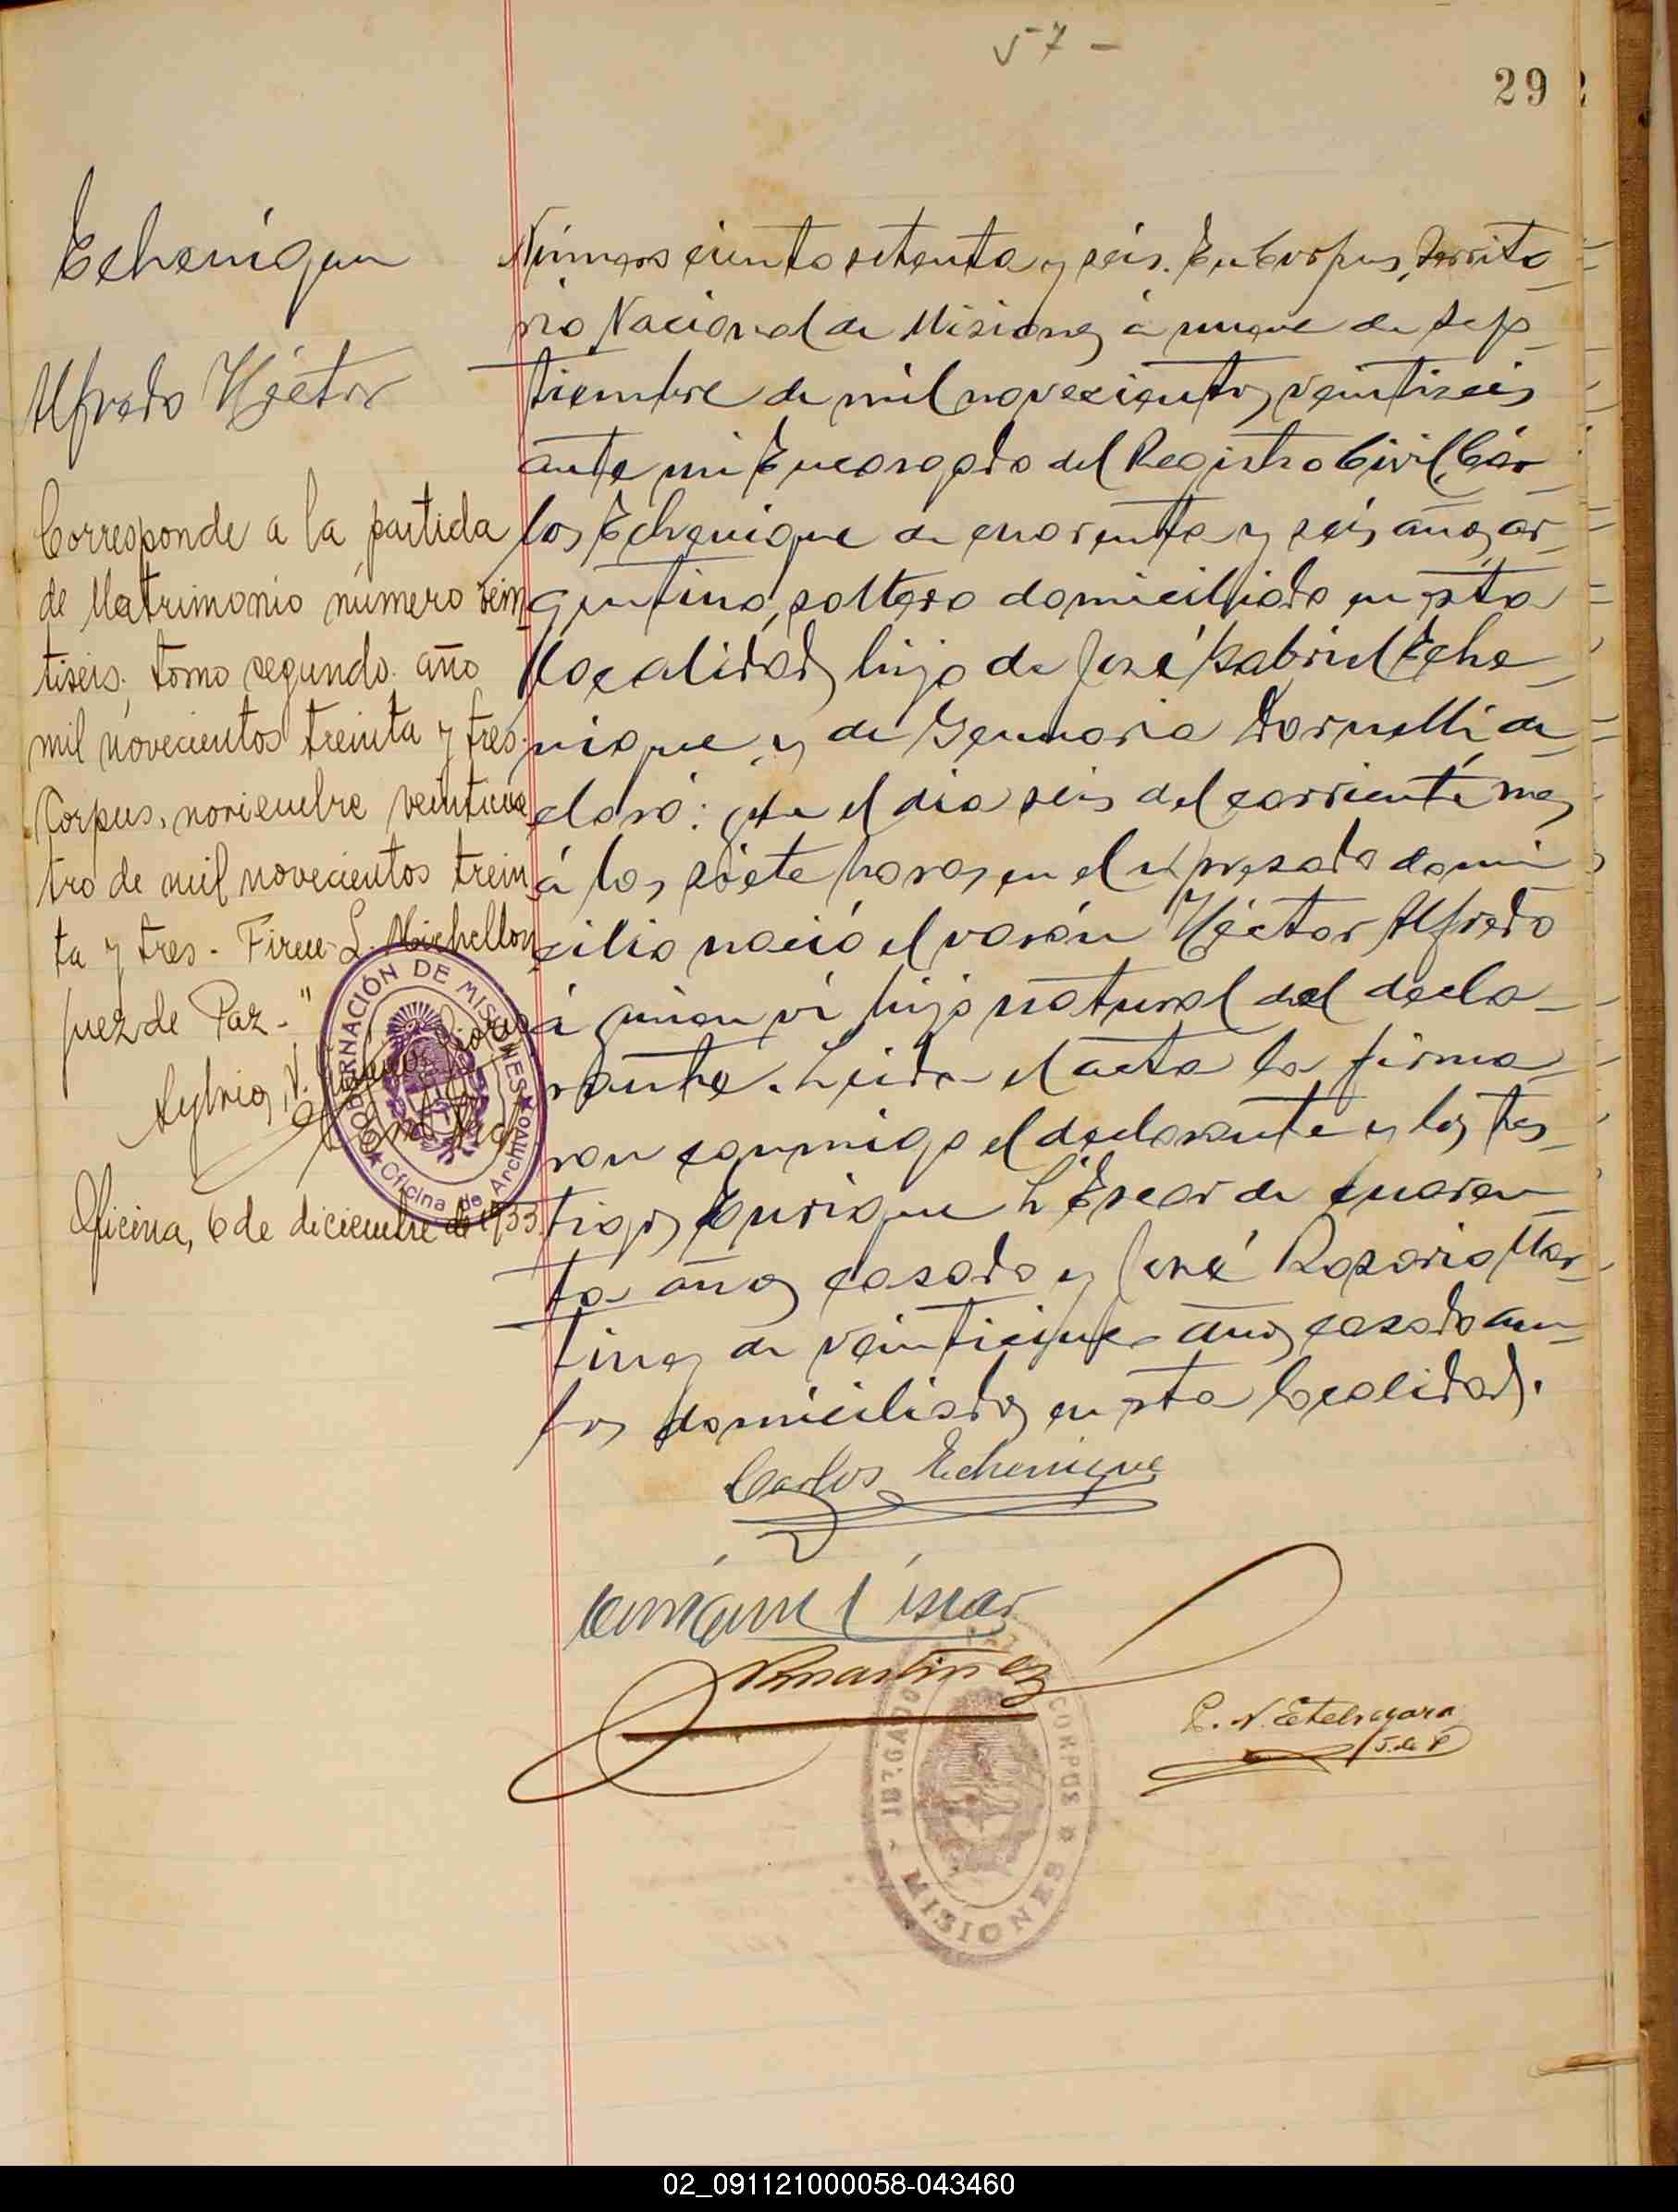 57 -
29
Echenique
Alfredo Héctor
Corresponde a la partida
de Matrimonio número vein
tiseis, tomo segundo. año
mil novecientos treinta y tres.
Corpus, noviembre veinticua
tro de mil novecientos trein
ta y tres - Firm L. Michellon
juez de Paz - "
Oficina, 6 de diciembre de 1933.
GOBERNACIÓN DE MISIONES
Oficina de Archivo
Número ciento setenta y seis. En Corpus, Territo
rio Nacional de Misiones á nueve de Sep
tiembre de mil novecientos veintiseis
ante mi Encargado del Registro Civil, Cár
los Echenique de cuarenta y seis años, ar
gentino, soltero domiciliado en esta
localidad, hijo de José Gabriel Eche
nique y de Genuaria de
claró: Que el dia seis del corriente mes
á las siete horas, en el expresado domi
cilio nació el varón Héctor Alfredo
á quien ví hijo natural del decla
rante. Leida el acta la firma
ron conmigo el declarante y los tes
tigos Enrique L'Escar de cuaren
ta años casado y José Rosario Mar
tinez de veinticinco años, casado am
bos domiciliados en esta localidad.
Carlos Echenique
Enrique L'Escar
Rmartinez
P. N. Etchegara
J. de P
JUZGADO DE PAZ CORPUS
MISIONES
02_091121000058-043460